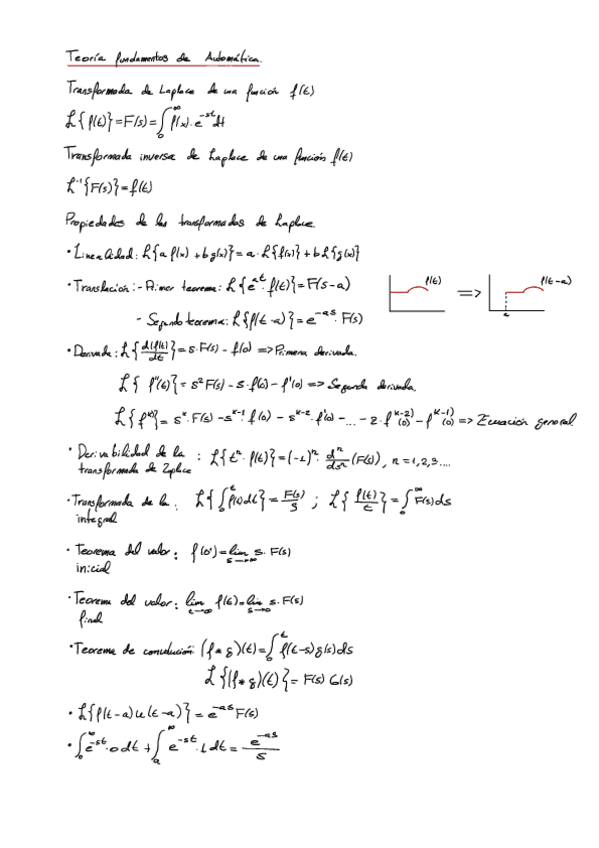 Teoría fundamentos de Automática.
Transformada de Laplace de una función f(t)
ℒ{f(t)}=F(s)=∫₀^∞ f(x)·e^-st dt
Transformada inversa de Laplace de una función f(t)
ℒ⁻¹{F(s)}=f(t)
Propiedades de las transformadas de Laplace.
· Linealidad: ℒ{a f(x) + b g(x)}= a·ℒ{f(x)} + b ℒ{g(x)}
· Translación: - Primer teorema: ℒ{e^at · f(t)}=F(s-a)
f(t) => f(t-a)
a
- Segundo teorema: ℒ{f(t-a)}=e^-as · F(s)
· Derivada: ℒ{d(f(t))/dt}=s·F(s) - f(0) => Primera derivada.
ℒ{f''(t)}= s²F(s) - s·f(0) - f'(0) => Segunda derivada.
ℒ{f^(k)}= s^k·F(s) - s^k-1 f(0) - s^k-2·f'(0) - ... - s·f^(k-2)(0) - f^(k-1)(0) => Ecuación general
· Derivabilidad de la : ℒ{t^n · f(t)}=(-1)^n · d^n/ds^n (F(s)), n=1,2,3....
transformada de Zplace
· Transformada de la : ℒ{∫₀^t f(t)dt}= F(s)/s ; ℒ{f(t)/t}=∫₀^∞ F(s)ds
integral
· Teorema del valor: f(0⁺)=lim s→∞ s·F(s)
inicial
· Teorema del valor: lim t→∞ f(t)=lim s→0 s·F(s)
final
· Teorema de convolución (f*g)(t)=∫₀^t f(t-s)g(s)ds
ℒ{(f*g)(t)}= F(s) G(s)
· ℒ{f(t-a)u(t-a)}= e^-as F(s)
· ∫₀^∞ e^-st · 0 dt + ∫ₐ^∞ e^-st · 1 dt = e^-as/s